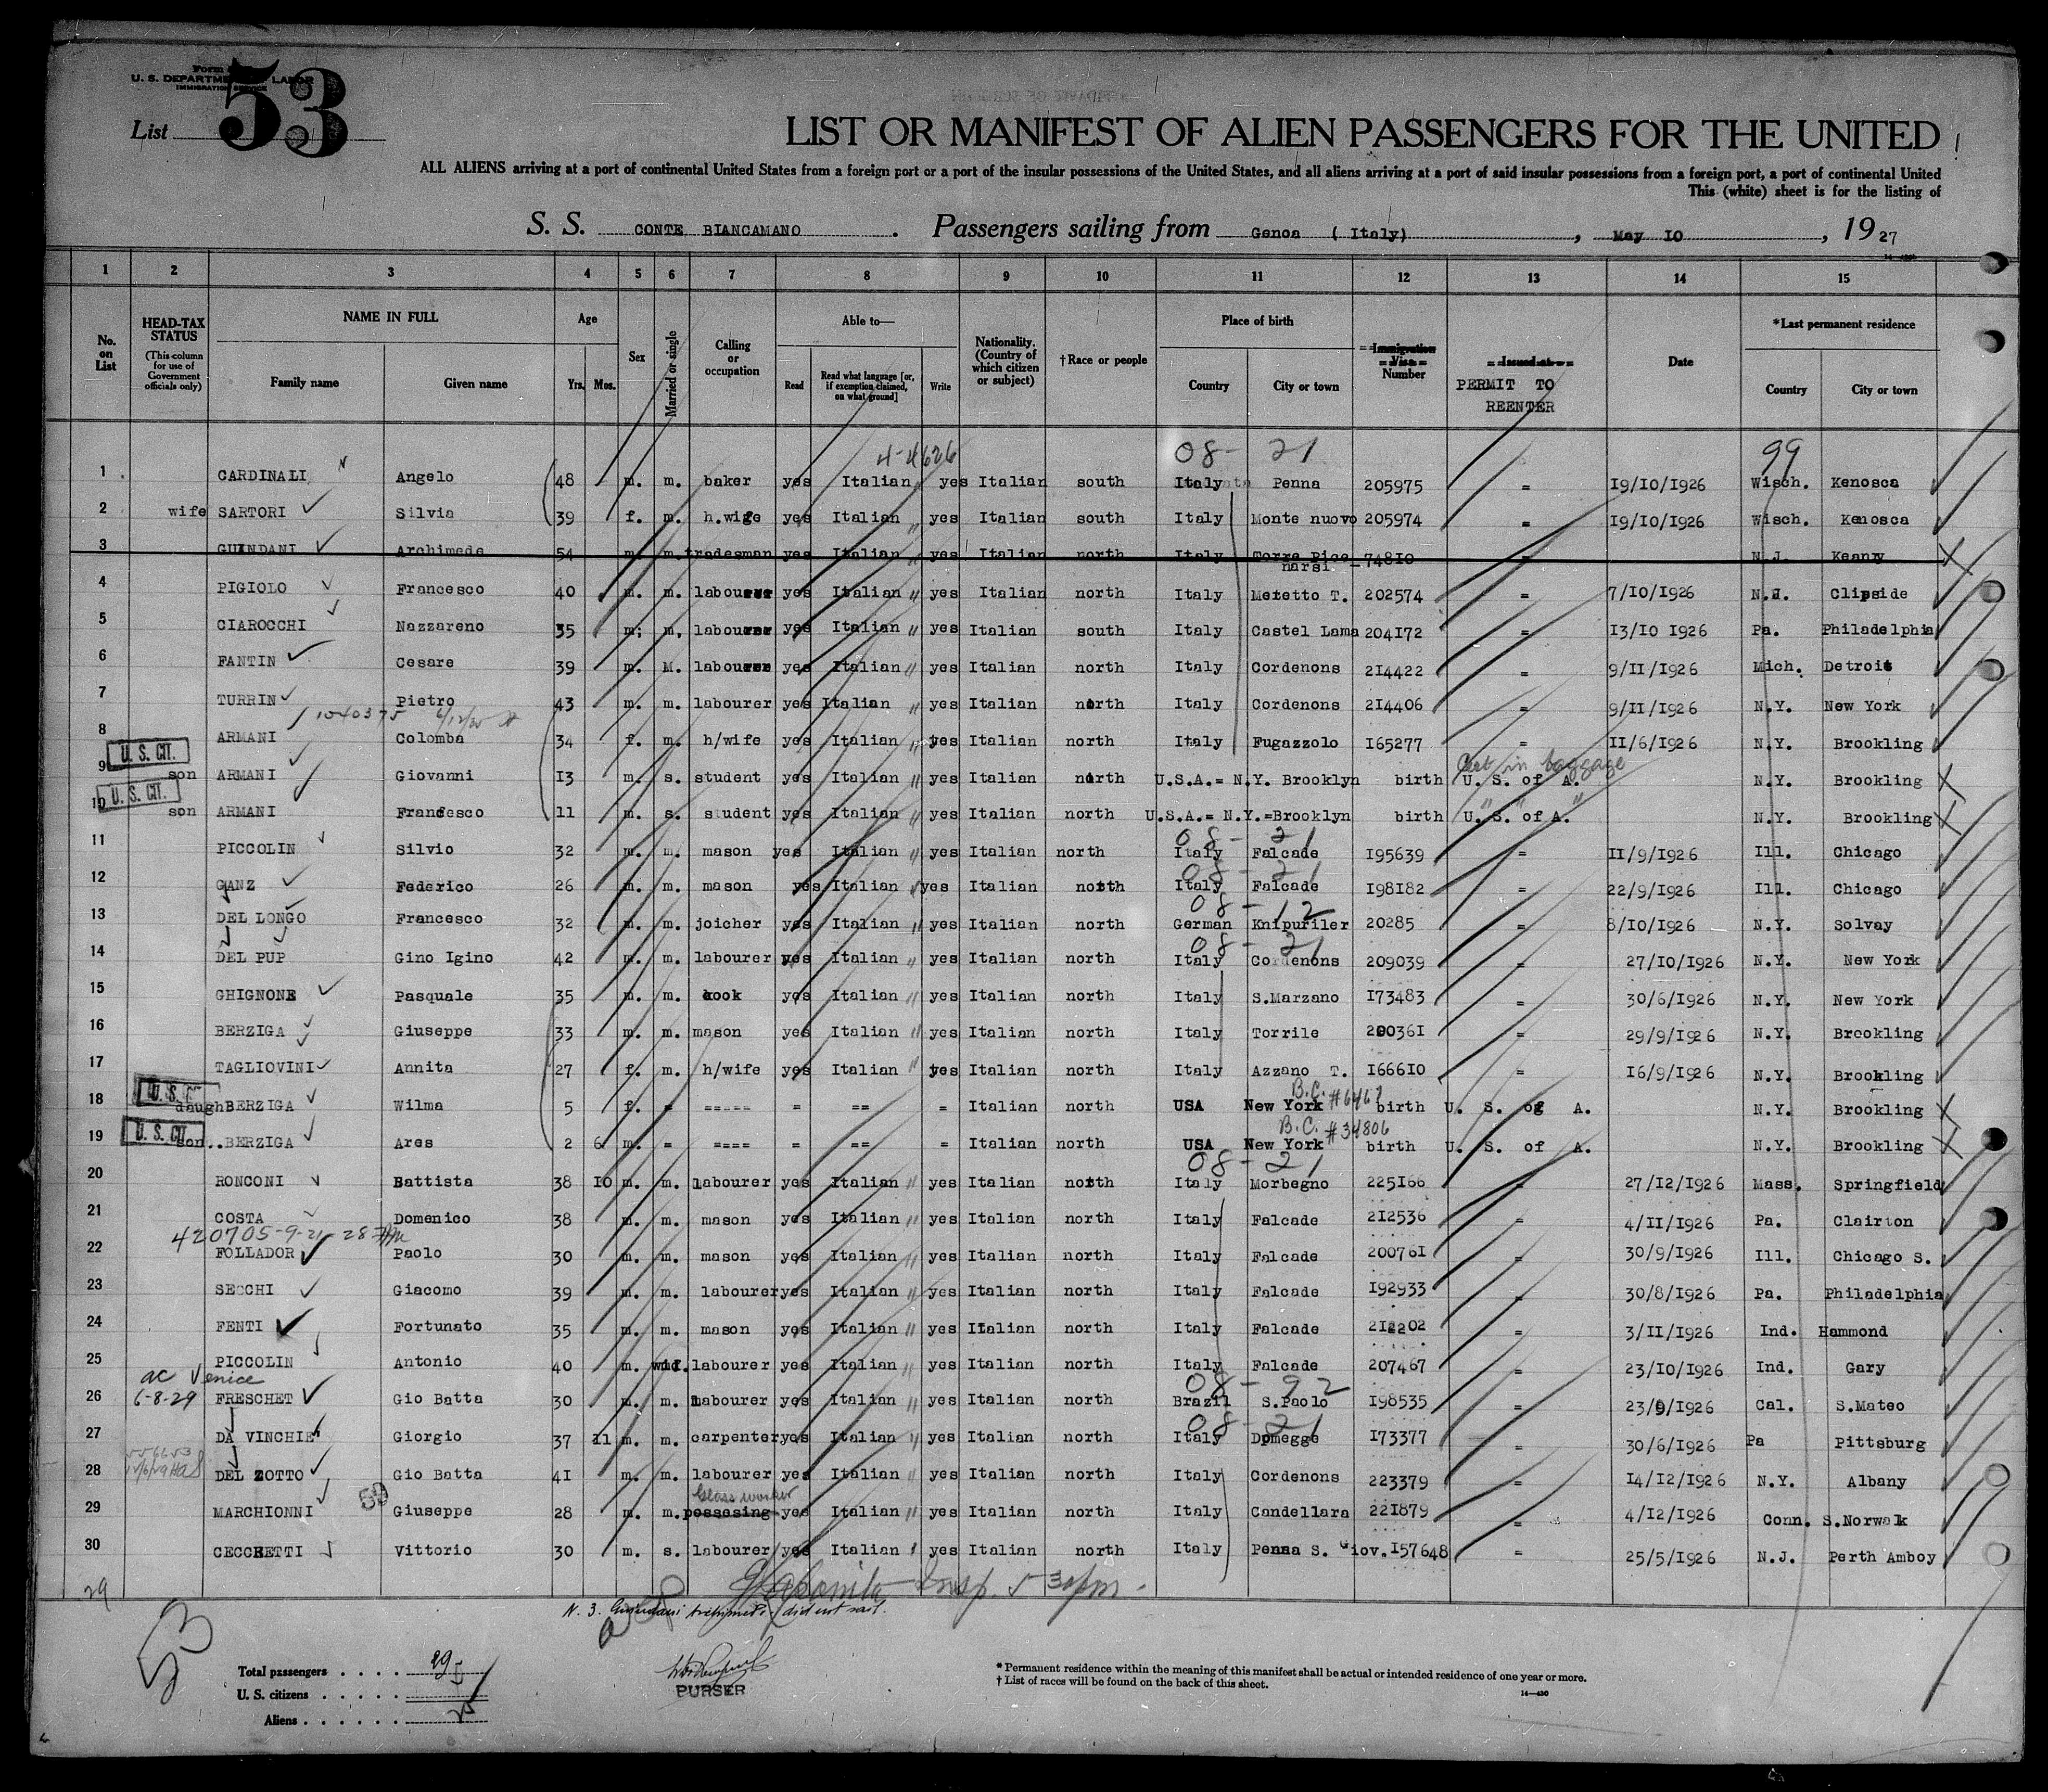 Form
U. S. DEPARTMENT OF LABOR
IMMIGRATION SERVICE
List 53
LIST OR MANIFEST OF ALIEN PASSENGERS FOR THE UNITED
ALL ALIENS arriving at a port of continental United States from a foreign port or a port of the insular possessions of the United States, and all aliens arriving at a port of said insular possessions from a foreign port, a port of continental United
This (white) sheet is for the listing of
S. S. CONTE BIANCAMANO. Passengers sailing from Genoa ( Italy), May 10, 1927
1 2 3 4 5 6 7 8 9 10 11 12 13 14 15
No. on List
HEAD-TAX STATUS (This column for use of Government officials only)
NAME IN FULL Family name Given name
Age Yrs. Mos.
Sex
Married or single
Calling or occupation
Able to— Read Read what language [or, if exemption claimed, on what ground] Write
Nationality. (Country of which citizen or subject)
†Race or people
Place of birth Country City or town
Immigration Visa Number
Issued at PERMIT TO REENTER
Date
*Last permanent residence Country City or town
4-4626 08- 21 99
1 CARDINALI Angelo 48 m. m. baker yes Italian yes Italian south Italy Penna 205975 = 19/10/1926 Wisch. Kenosca
2 wife SARTORI Silvia 39 f. m. h.wife yes Italian yes Italian south Italy Monte nuovo 205974 = 19/10/1926 Wisch. Kenosca
3 GUINDANI Archimede 54 m. m. tradesman yes Italian yes Italian north Italy Torre Pice narsi 74810 N.J. Keanry
4 PIGIOLO Francesco 40 m. m. labourer yes Italian " yes Italian north Italy Meretto T. 202574 = 7/10/1926 N.J. Clipside
5 CIAROCCHI Nazzareno 35 m; m. labourer yes Italian " yes Italian south Italy Castel Lama 204172 = 13/10 1926 Pa. Philadelphia
6 FANTIN Cesare 39 m. M. labourer yes Italian " yes Italian north Italy Cordenons 214422 = 9/11/1926 Mich. Detroit
7 TURRIN Pietro 43 m. m. labourer yes Italian " yes Italian north Italy Cordenons 214406 = 9/11/1926 N.Y. New York
1040375 6/12/35
8 ARMANI Colomba 34 f. m. h/wife yes Italian " yes Italian north Italy Fugazzolo 165277 = 11/6/1926 N.Y. Brookling
U. S. CIT. in baggage
9 son ARMANI Giovanni 13 m. s. student yes Italian " yes Italian north U.S.A.= N.Y. Brooklyn birth U. S. of A. N.Y. Brookling
U. S. CIT.
10 son ARMANI Francesco 11 m. s. student yes Italian " yes Italian north U.S.A.= N.Y.=Brooklyn birth U. S. of A. N.Y. Brookling
08- 21
11 PICCOLIN Silvio 32 m. m. mason yes Italian " yes Italian north Italy Falcade 195639 = 11/9/1926 Ill. Chicago
08- 21
12 GANZ Federico 26 m. m. mason yes Italian yes Italian north Italy Falcade 198182 = 22/9/1926 Ill. Chicago
08- 12
13 DEL LONGO Francesco 32 m. m. joicher yes Italian " yes Italian north German Knipuriler 20285 = 8/10/1926 N.Y. Solvay
08- 21
14 DEL PUP Gino Igino 42 m. m. labourer yes Italian " yes Italian north Italy Cordenons 209039 = 27/10/1926 N.Y. New York
15 GHIGNONE Pasquale 35 m. m. cook yes Italian " yes Italian north Italy S.Marzano 173483 = 30/6/1926 N.Y. New York
16 BERZIGA Giuseppe 33 m. m. mason yes Italian " yes Italian north Italy Torrile 200361 = 29/9/1926 N.Y. Brookling
17 TAGLIOVINI Annita 27 f. m. h/wife yes Italian " yes Italian north Italy Azzano T. 166610 = 16/9/1926 N.Y. Brookling
U. S. CIT. B.C. #6467
18 daugh BERZIGA Wilma 5 f. = ----- = == = Italian north USA New York birth U. S. of A. N.Y. Brookling
U. S. CIT. B.C. #34806
19 son.. BERZIGA Ares 2 6 m. = ==== = == = Italian north USA New York birth U. S. of A. N.Y. Brookling
08- 21
20 RONCONI Battista 38 10 m. m. labourer yes Italian " yes Italian north Italy Morbegno 225166 = 27/12/1926 Mass. Springfield
21 COSTA Domenico 38 m. m. mason yes Italian " yes Italian north Italy Falcade 212536 = 4/11/1926 Pa. Clairton
420705-9-21-28
22 FOLLADOR Paolo 30 m. m. mason yes Italian " yes Italian north Italy Falcade 200761 = 30/9/1926 Ill. Chicago S.
23 SECCHI Giacomo 39 m. m. labourer yes Italian " yes Italian north Italy Falcade 192933 = 30/8/1926 Pa. Philadelphia
24 FENTI Fortunato 35 m. m. mason yes Italian " yes Italian north Italy Falcade 212202 = 3/11/1926 Ind. Hammond
25 PICCOLIN Antonio 40 m. wid. labourer yes Italian " yes Italian north Italy Falcade 207467 = 23/10/1926 Ind. Gary
ac Venice 08- 92
26 6-8-29 FRESCHET Gio Batta 30 m. m. labourer yes Italian " yes Italian north Brazil S.Paolo 198535 = 23/9/1926 Cal. S.Mateo
08- 21
27 DA VINCHIE Giorgio 37 11 m. m. carpenter yes Italian " yes Italian north Italy Domegge 173377 = 30/6/1926 Pa Pittsburg
28 DEL ZOTTO Gio Batta 41 m. m. labourer yes Italian " yes Italian north Italy Cordenons 223379 = 14/12/1926 N.Y. Albany
Glass worker
29 MARCHIONNI 50 Giuseppe 28 m. m. possesing yes Italian " yes Italian north Italy Candellara 221879 = 4/12/1926 Conn. S.Norwalk
30 CECCHETTI Vittorio 30 m. s. labourer yes Italian yes Italian north Italy Penna S. Giov. 157648 = 25/5/1926 N.J. Perth Amboy
29
Insp. 5 30pm.
N. 3. Guindani Archimede, did not sail.
53
Total passengers . . . . 29
U. S. citizens . . . . .
Aliens . . . . . . 25
PURSER
* Permanent residence within the meaning of this manifest shall be actual or intended residence of one year or more.
† List of races will be found on the back of this sheet.
14—430